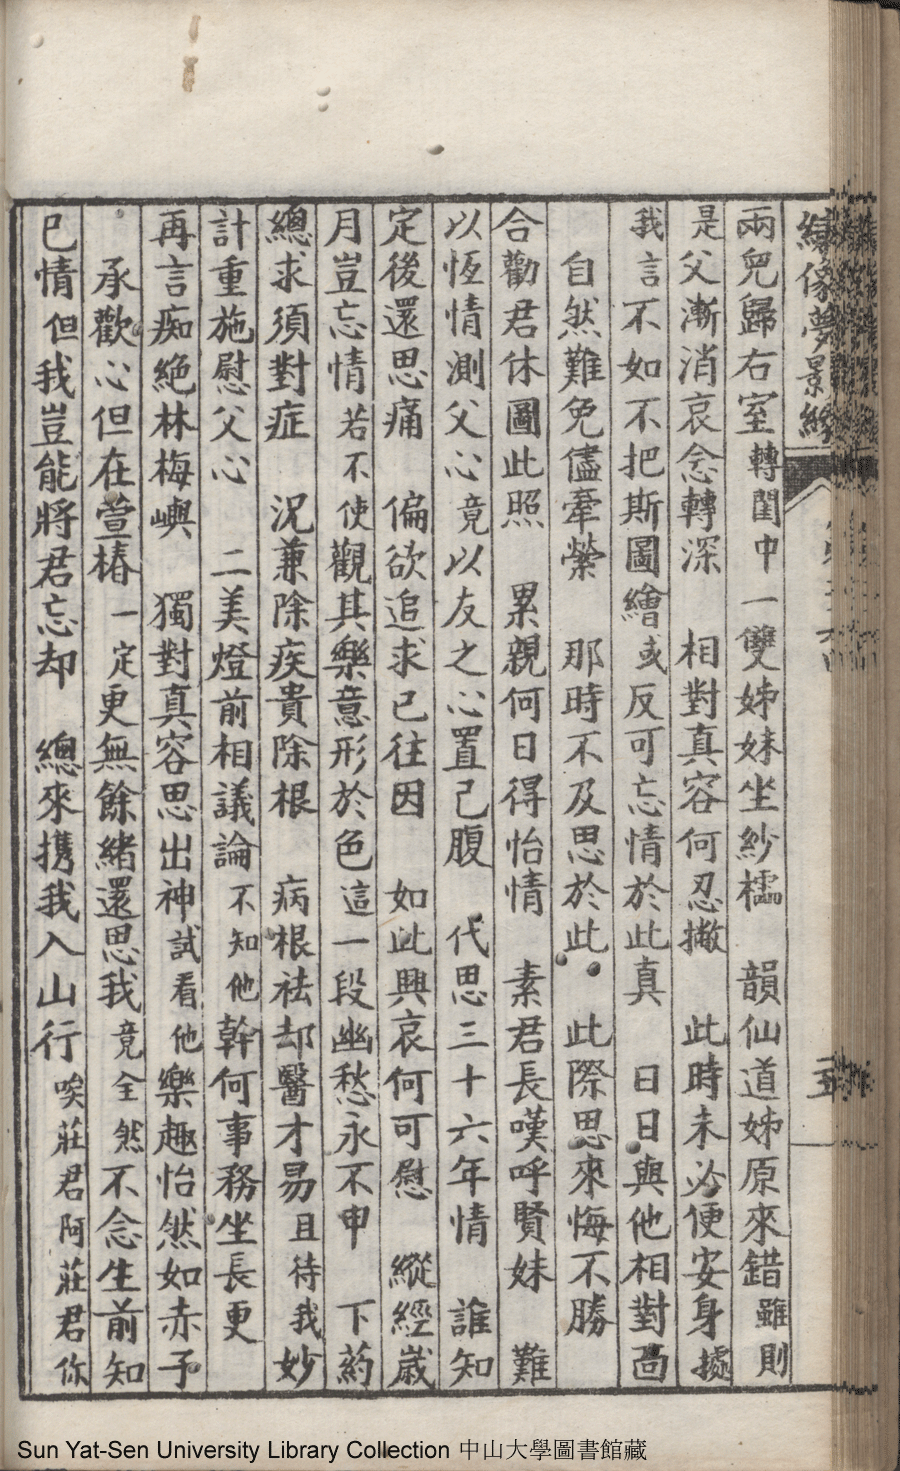 繡像夢景緣
五
兩兒歸右室轉閨中一雙姊妹坐紗櫺　韻仙道姊原來錯雖則
是父漸消哀念轉深　相對真容何忍撇　此時未必便安身據
我言不如不把斯圖繪或反可忘情於此真　日日與他相對面
自然難免儘牽縈　那時不及思於此　此際思來悔不勝
合勸君休圖此照　累親何日得怡情　素君長嘆呼賢妹　難
以恆情測父心竟以友之心置己腹　代思三十六年情　誰知
定後還思痛　偏欲追求已往因　如此興哀何可慰　縱經歲
月豈忘情若不使觀其樂意形於色這一段幽愁永不申　下葯
總求須對症　況兼除疾貴除根　病根祛却醫才易且待我妙
計重施慰父心　二美燈前相議論不知他幹何事務坐長更
再言痴絕林梅嶼　獨對真容思出神試看他樂趣怡然如赤子
承歡心但在萱椿一定更無餘緒還思我竟全然不念生前知
已情但我豈能將君忘却　總來携我入山行唉莊君阿莊君你
Sun Yat-Sen University Library Collection 中山大學圖書館藏